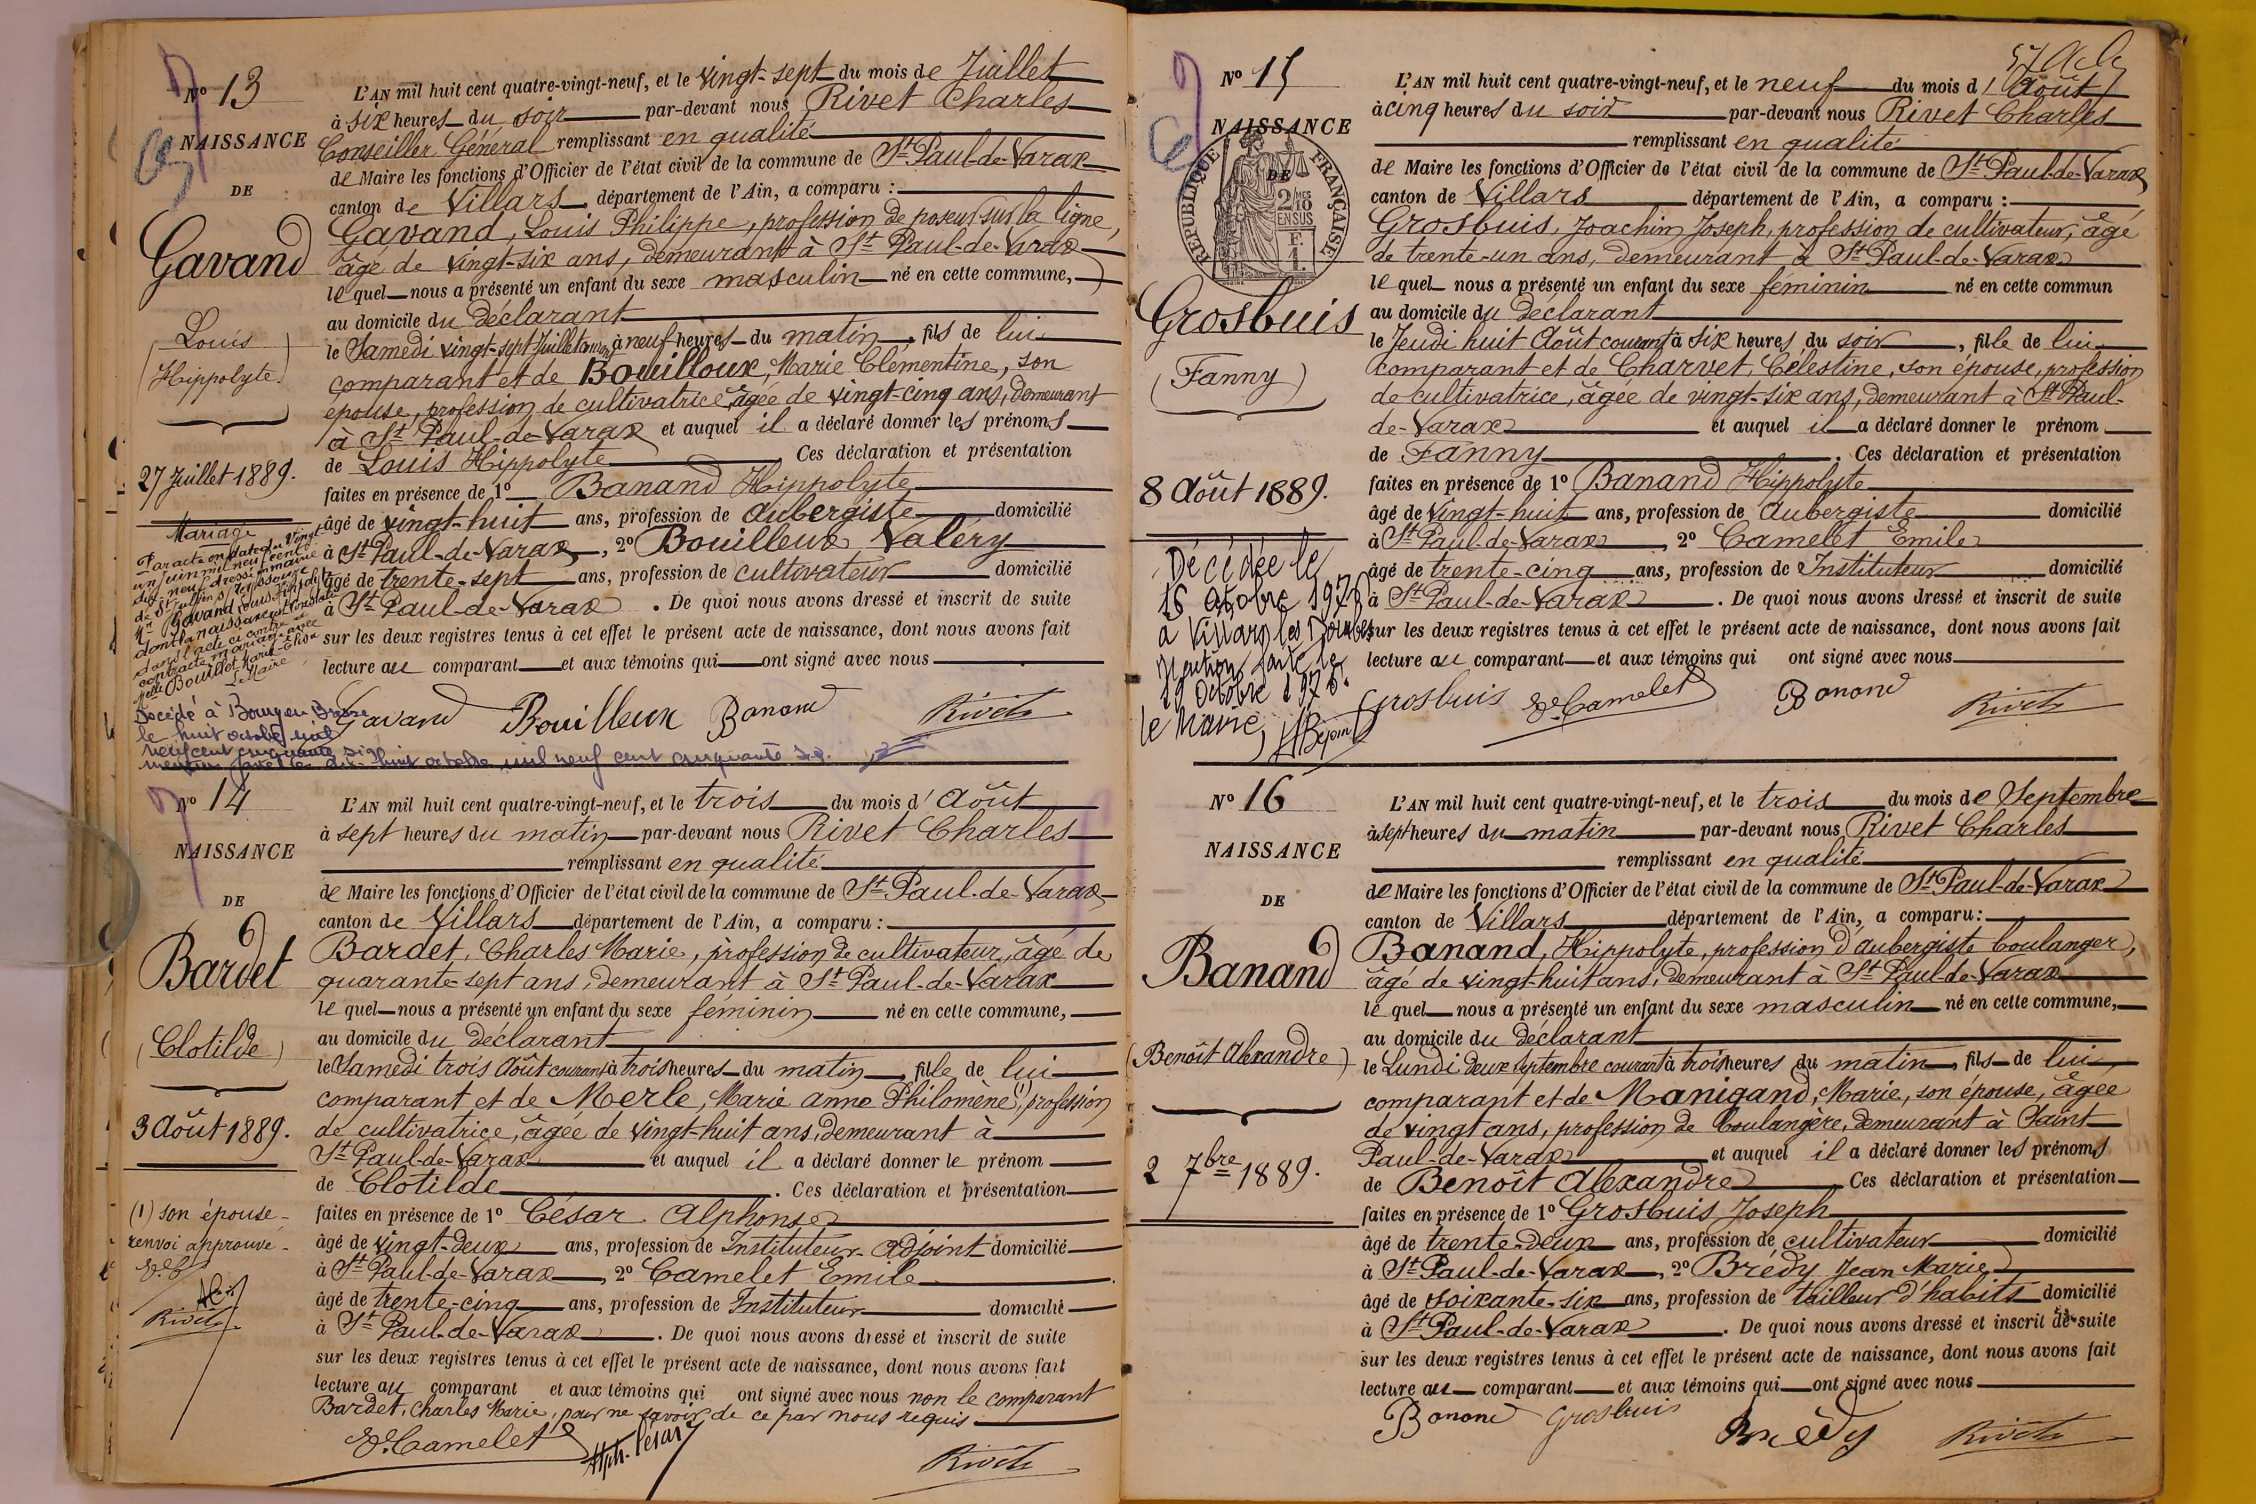 N° 13
NAISSANCE
DE
Gavand
Louis
Hippolyte
27 Juillet 1889.
Mariage
Par acte en date du Vingt
un juin mil neuf cent
dix-neuf, dressé en mairie
Mr Gavand Louis Hippolyte
dont la naissance est constatée
dans l'acte ci-contre a
contracté mariage avec
Melle Bouillet Marie-
Le Maire
Décédé à Bourg en Bresse
le huit octobre mil
neuf cent cinquante six
mention faite le dix huit octobre mil neuf cent cinquante six.
L'AN mil huit cent quatre-vingt-neuf, et le vingt-sept du mois de Juillet
à six heures du soir par-devant nous Rivet Charles
Conseiller Général remplissant en qualité
de Maire les fonctions d'Officier de l'état civil de la commune de St Paul-de-Varax
canton de Villars, département de l'Ain, a comparu :
Gavand, Louis Philippe, profession de poseur sur la ligne,
âgé de vingt-six ans, demeurant à St Paul-de-Varax
lequel nous a présenté un enfant du sexe masculin né en cette commune,
au domicile du déclarant
le Samedi vingt-sept Juillet courant à neuf heures du matin, fils de lui
comparant et de Bouilloux, Marie Clémentine, son
épouse, profession de cultivatrice, âgée de vingt-cinq ans, demeurant
à St Paul-de-Varax et auquel il a déclaré donner les prénoms
de Louis Hippolyte. Ces déclaration et présentation
faites en présence de 1° Banand Hippolyte
âgé de vingt-huit ans, profession de aubergiste domicilié
à St Paul-de-Varax, 2° Bouilleux Valéry
âgé de trente-sept ans, profession de cultivateur domicilié
à St Paul-de-Varax. De quoi nous avons dressé et inscrit de suite
sur les deux registres tenus à cet effet le présent acte de naissance, dont nous avons fait
lecture au comparant et aux témoins qui ont signé avec nous
Gavand Bouilleux Banand Rivet
N° 14
NAISSANCE
DE
Bardet
Clotilde
3 Août 1889.
(1) son épouse
renvoi approuvé
E. C
Rivet
L'AN mil huit cent quatre-vingt-neuf, et le trois du mois d'Août
à sept heures du matin par-devant nous Rivet Charles
remplissant en qualité
de Maire les fonctions d'Officier de l'état civil de la commune de St Paul-de-Varax
canton de Villars département de l'Ain, a comparu :
Bardet, Charles Marie, profession de cultivateur, âgé de
quarante-sept ans, demeurant à St Paul-de-Varax
lequel nous a présenté un enfant du sexe féminin né en cette commune,
au domicile du déclarant
le Samedi trois Août courant à trois heures du matin, fille de lui
comparant et de Merle, Marie Anne Philomène (1), profession
de cultivatrice, âgée de vingt-huit ans, demeurant à
St Paul-de-Varax et auquel il a déclaré donner le prénom
de Clotilde. Ces déclaration et présentation
faites en présence de 1° César Alphonse
âgé de vingt-deux ans, profession de Instituteur-Adjoint domicilié
à St Paul-de-Varax, 2° Camelet Emile
âgé de trente-cinq ans, profession de Instituteur domicilié
à St Paul-de-Varax. De quoi nous avons dressé et inscrit de suite
sur les deux registres tenus à cet effet le présent acte de naissance, dont nous avons fait
lecture au comparant et aux témoins qui ont signé avec nous non le comparant
Bardet, Charles Marie, pour ne savoir de ce par nous requis
E. Camelet Alph. César Rivet
N° 15
NAISSANCE
DE
RÉPUBLIQUE FRANÇAISE
2/10 EN SUS
Grosbuis
Fanny
8 Août 1889.
Décédée le
16 octobre 1976
à Villars les Dombes
Mention faite le
19 octobre 1976.
Le Maire,
L'AN mil huit cent quatre-vingt-neuf, et le neuf du mois d'Août
à cinq heures du soir par-devant nous Rivet Charles
remplissant en qualité
de Maire les fonctions d'Officier de l'état civil de la commune de St Paul-de-Varax
canton de Villars département de l'Ain, a comparu :
Grosbuis, Joachim Joseph, profession de cultivateur, âgé
de trente-un ans, demeurant à St Paul-de-Varax
lequel nous a présenté un enfant du sexe féminin né en cette commun
au domicile du déclarant
le Jeudi huit Août courant à six heures du soir, fille de lui
comparant et de Charvet, Célestine, son épouse, profession
de cultivatrice, âgée de vingt-six ans, demeurant à St Paul-
de-Varax et auquel il a déclaré donner le prénom
de Fanny. Ces déclaration et présentation
faites en présence de 1° Banand Hippolyte
âgé de vingt-huit ans, profession de Aubergiste domicilié
à St Paul-de-Varax, 2° Camelet Emile
âgé de trente-cinq ans, profession de Instituteur domicilié
à St Paul-de-Varax. De quoi nous avons dressé et inscrit de suite
sur les deux registres tenus à cet effet le présent acte de naissance, dont nous avons fait
lecture au comparant et aux témoins qui ont signé avec nous
Grosbuis E. Camelet Banand Rivet
N° 16
NAISSANCE
DE
Banand
Benoît Alexandre
2 7bre 1889.
L'AN mil huit cent quatre-vingt-neuf, et le trois du mois de Septembre
à sept heures du matin par-devant nous Rivet Charles
remplissant en qualité
de Maire les fonctions d'Officier de l'état civil de la commune de St Paul-de-Varax
canton de Villars département de l'Ain, a comparu :
Banand, Hippolyte, profession d'aubergiste boulanger,
âgé de vingt-huit ans, demeurant à St Paul-de-Varax
lequel nous a présenté un enfant du sexe masculin né en cette commune,
au domicile du déclarant
le Lundi deux Septembre courant à trois heures du matin, fils de lui
comparant et de Manigand, Marie, son épouse, âgée
de vingt ans, profession de boulangère, demeurant à Saint
Paul-de-Varax et auquel il a déclaré donner les prénoms
de Benoît Alexandre Ces déclaration et présentation
faites en présence de 1° Grosbuis Joseph
âgé de trente-deux ans, profession de cultivateur domicilié
à St Paul-de-Varax, 2° Brédy Jean Marie
âgé de soixante-six ans, profession de tailleur d'habits domicilié
à St Paul-de-Varax. De quoi nous avons dressé et inscrit de suite
sur les deux registres tenus à cet effet le présent acte de naissance, dont nous avons fait
lecture au comparant et aux témoins qui ont signé avec nous
Banand Grosbuis Brédy Rivet